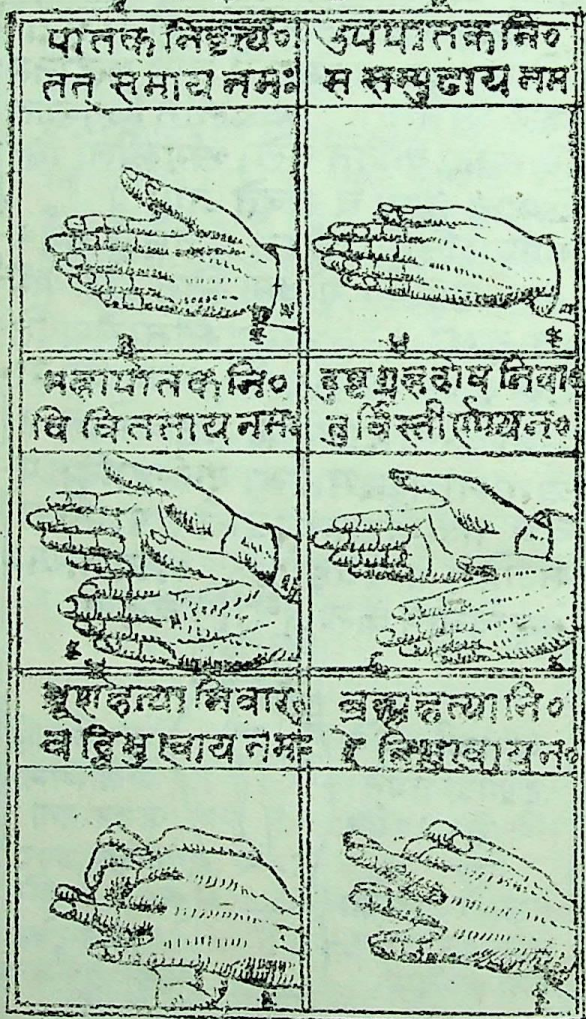 पातक निवृत्त्य०
तत् समाय नमः
उपपातक नि०
स सम्पुटाय नम
महापातक नि०
वि वितताय नमः
दुष्ट ग्रहदोष निवा
तु विस्तीर्णाय न०
भ्रूणहत्या निवार
व द्विमुखाय नमः
ब्रह्महत्या नि०
रे त्रिमुखाय न०